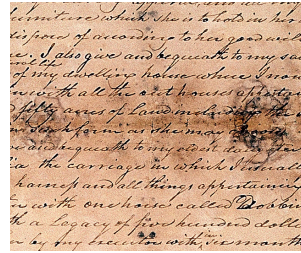 furniture which she is to hold in her
dispose of according to her good will
I also give and bequeath to my
of my dwelling house where I now
with all the out houses appertain
fifty acres of Land
form as she may
and bequeath to my eldest
the carriage in which I usual
harness and all things appertaining
with one horse called Dobbin
a Legacy of five hundred dolla
by my executor with six month